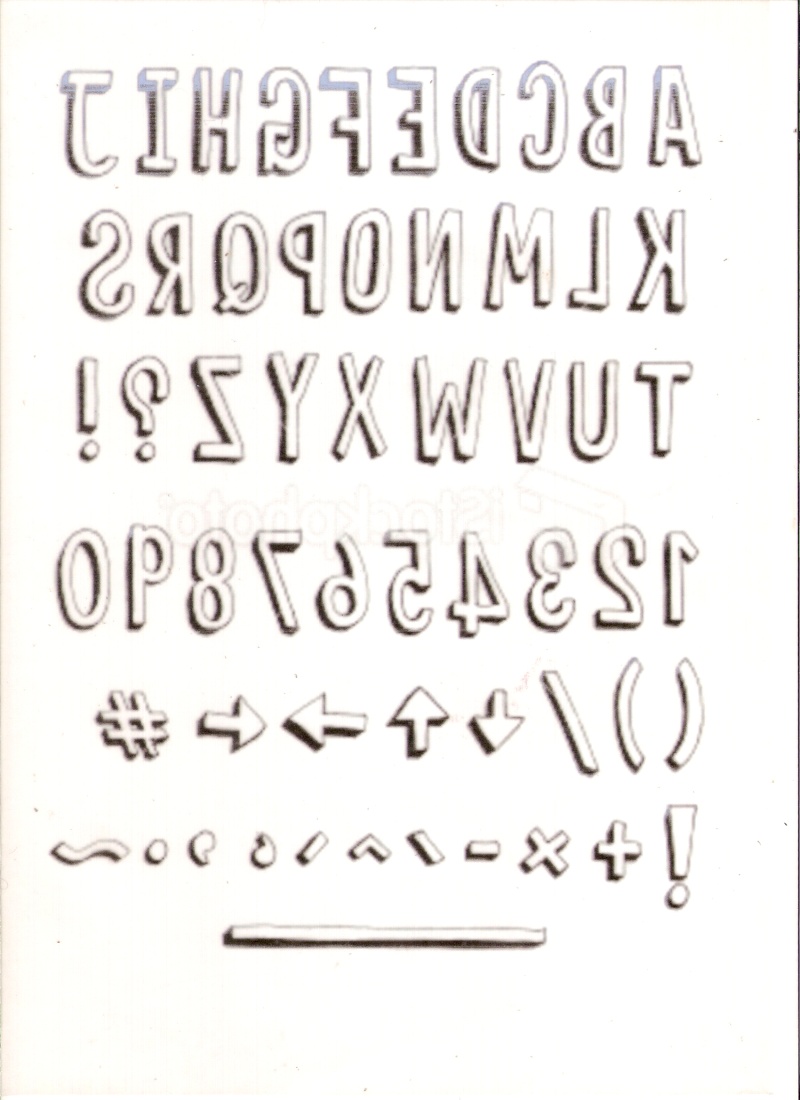 ABCDEFGHIJ
KLMNOPQRS
TUVWXYZ?!
iStockphoto
1234567890
()/↓↑→←#
!+×-´^`‘’.~